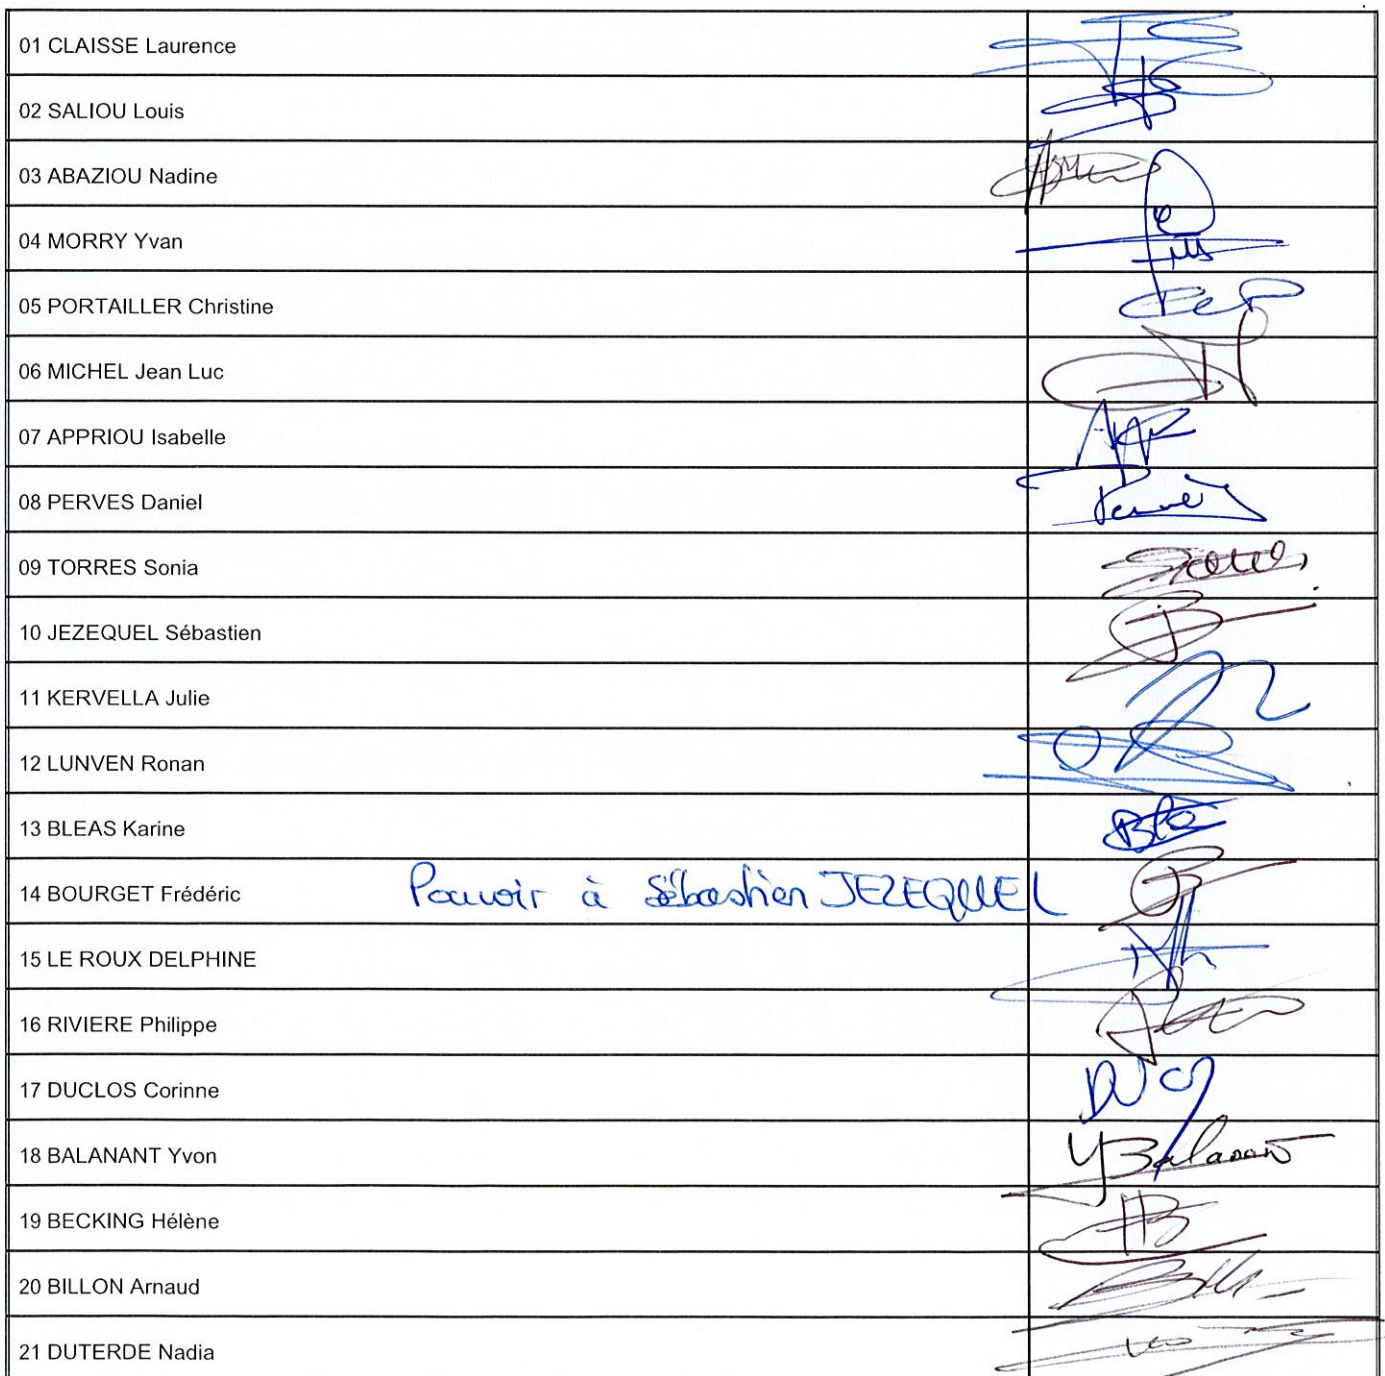 01 CLAISSE Laurence
02 SALIOU Louis
03 ABAZIOU Nadine
04 MORRY Yvan
05 PORTAILLER Christine
06 MICHEL Jean Luc
07 APPRIOU Isabelle
08 PERVES Daniel
09 TORRES Sonia
10 JEZEQUEL Sébastien
11 KERVELLA Julie
12 LUNVEN Ronan
13 BLEAS Karine
14 BOURGET Frédéric Pouvoir à Sébastien JEZEQUEL
15 LE ROUX DELPHINE
16 RIVIERE Philippe
17 DUCLOS Corinne
18 BALANANT Yvon YBalanant
19 BECKING Hélène
20 BILLON Arnaud
21 DUTERDE Nadia